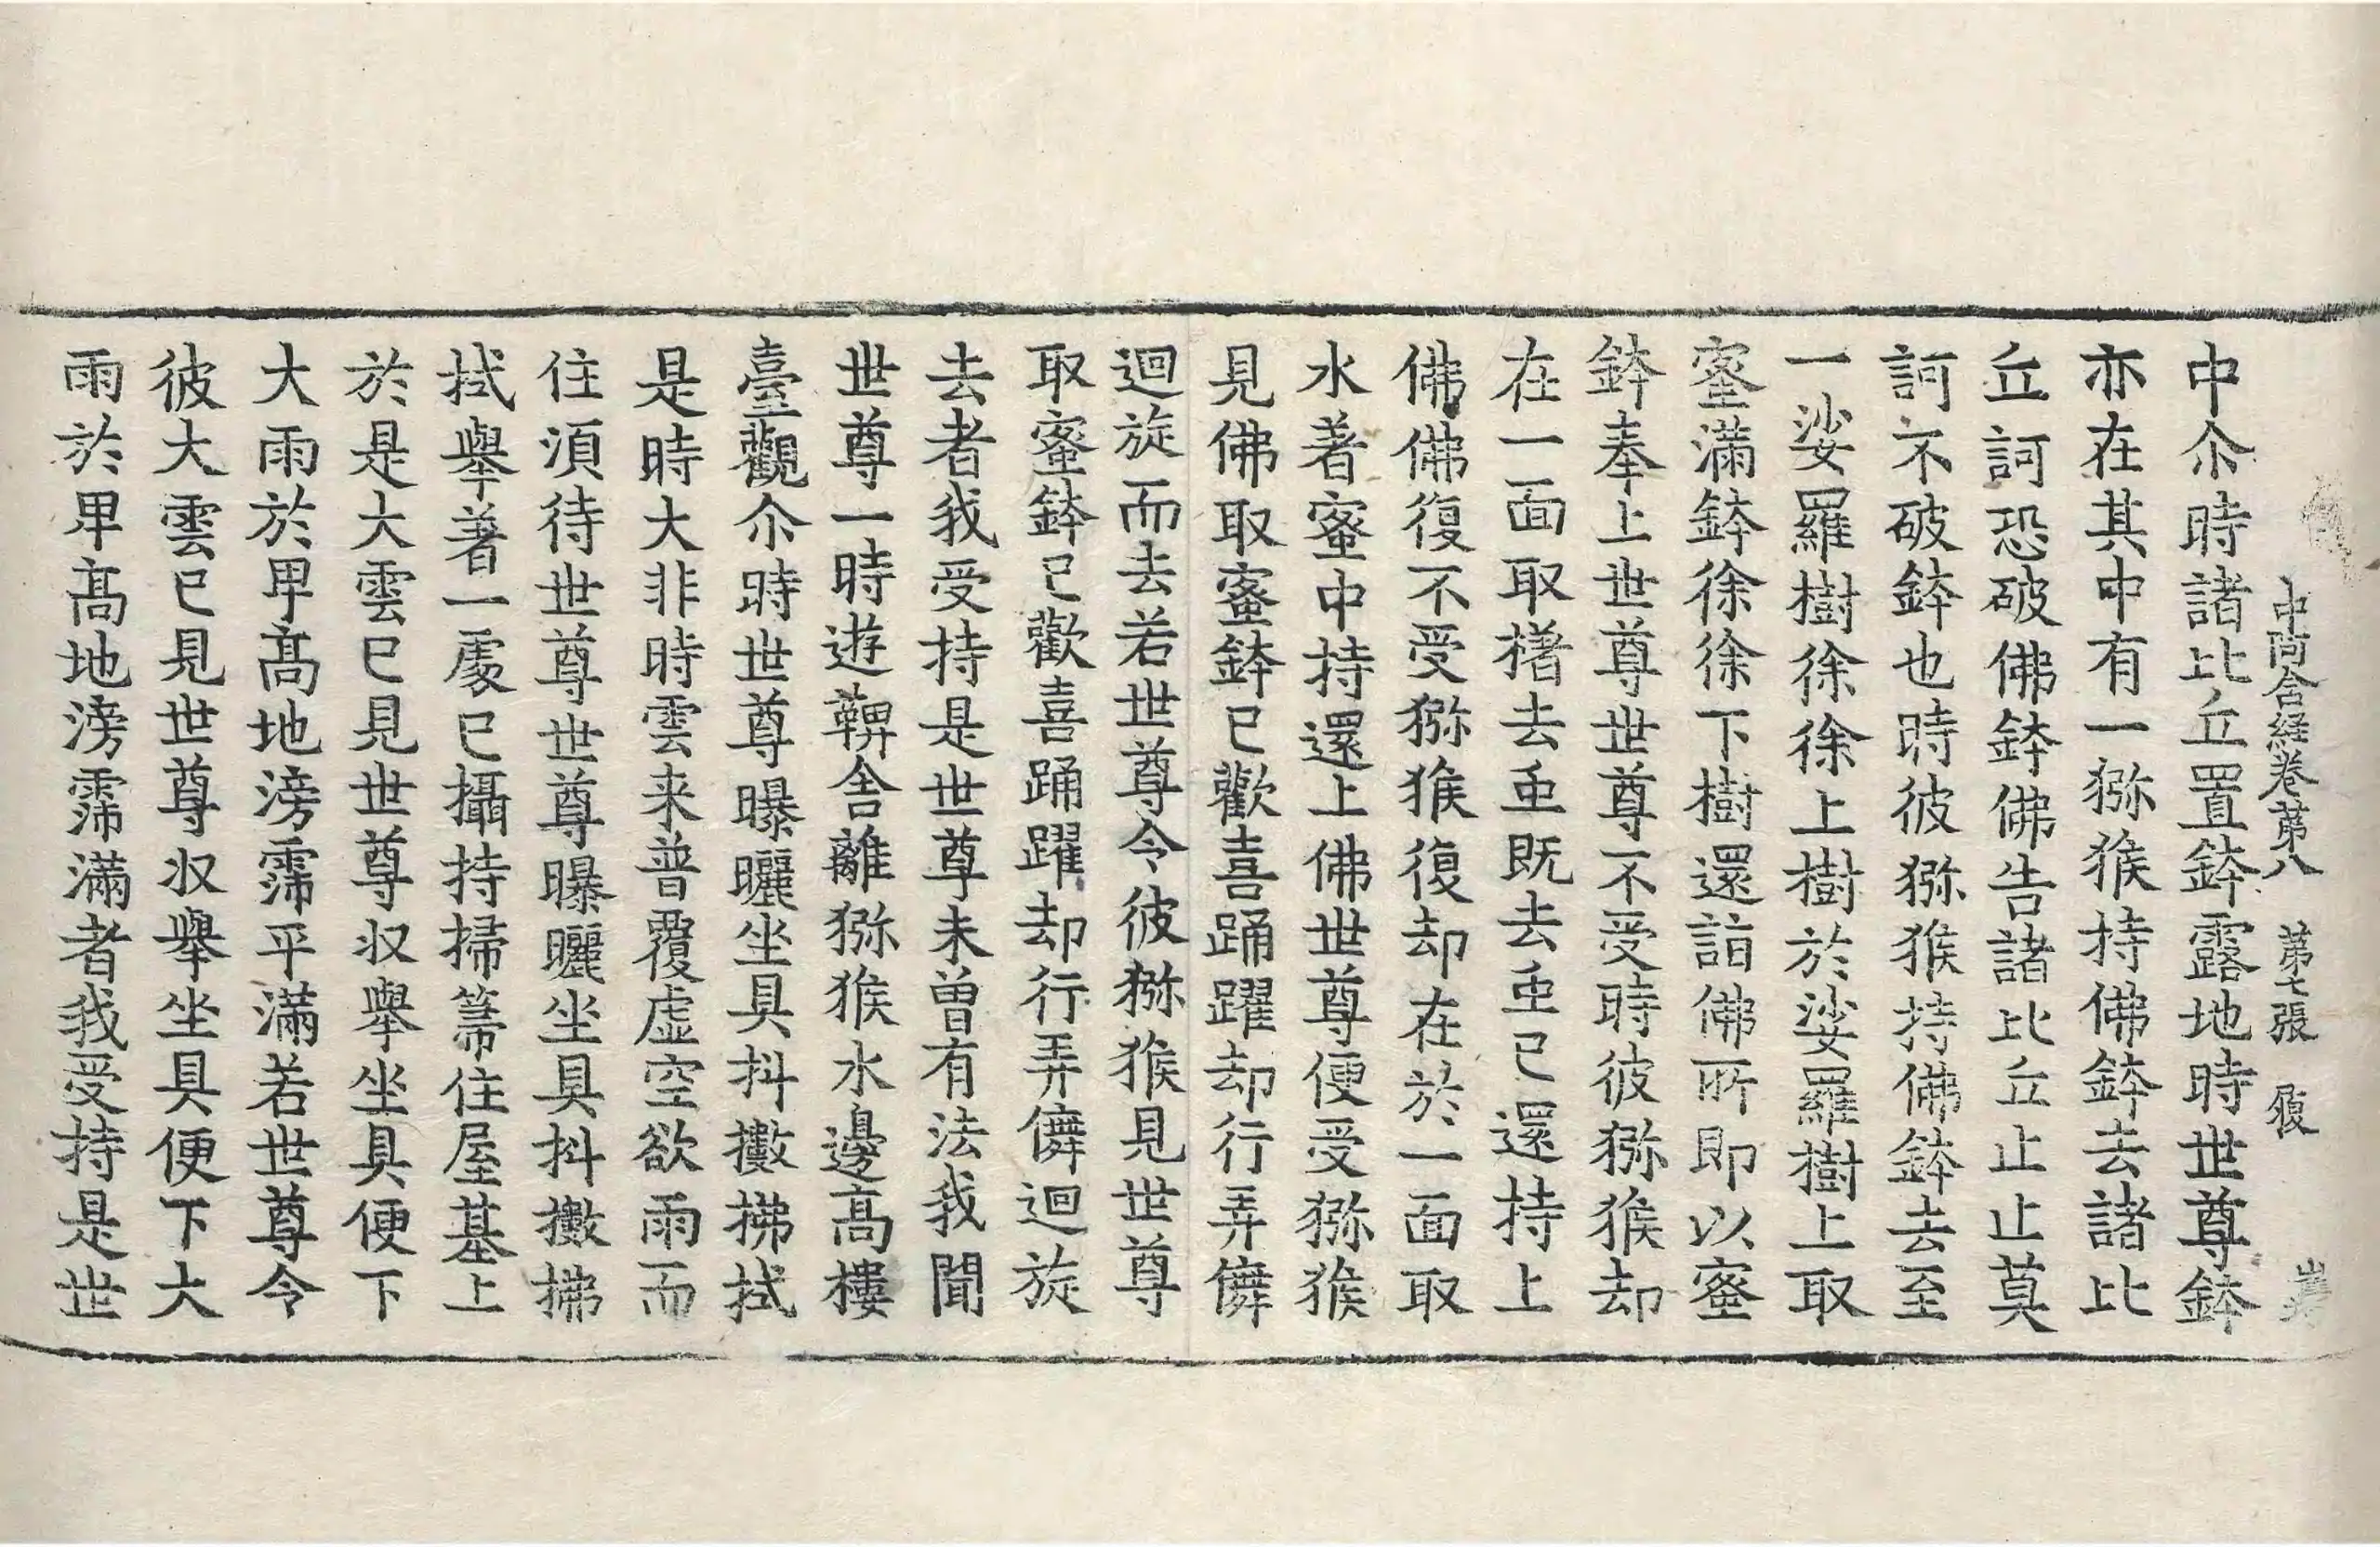 中阿含経卷苐八 苐七張 履
中尒時諸比丘置鉢露地時世尊鉢
亦在其中有一猕猴持佛鉢去諸比
丘訶恐破佛鉢佛告諸比丘止止莫
訶不破鉢也時彼猕猴持佛鉢去至
一娑羅樹徐徐上樹於娑羅樹上取
蜜滿鉢徐徐下樹還詣佛所即以蜜
鉢奉上世尊世尊不受時彼猕猴却
在一面取櫡去䖝既去䖝已還持上
佛佛復不受猕猴復却在於一面取
水著蜜中持還上佛世尊便受猕猴
見佛取蜜鉢已歡喜踊躍却行弄儛
迴旋而去若世尊令彼猕猴見世尊
取蜜鉢已歡喜踊躍却行弄儛迴旋
去者我受持是世尊未曽有法我聞
世尊一時遊鞞舍離猕猴水邊髙樓
臺觀尒時世尊曝曬坐具抖擻拂拭
是時大非時雲来普覆虛空欲雨而
住須待世尊世尊曝曬坐具抖擻拂
拭舉著一處已攝持掃箒住屋基上
於是大雲已見世尊収舉坐具便下
大雨於卑髙地滂霈平滿若世尊令
彼大雲已見世尊収舉坐具便下大
雨於卑髙地滂霈滿者我受持是世